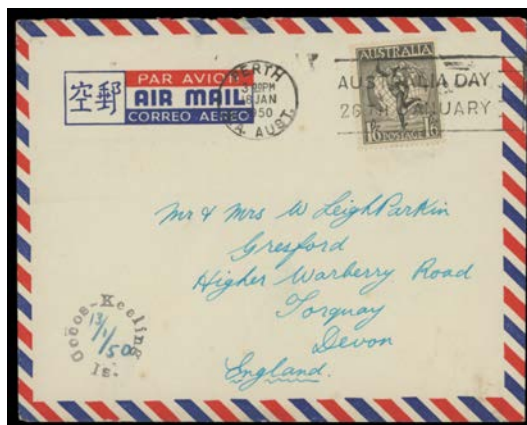 PAR AVION
空郵 AIR MAIL
CORREO AEREO
PERTH
JAN
1950
W. AUST.
AUSTRALIA
AUSTRALIA DAY
26TH JANUARY
1/6 POSTAGE 1/6
Mr & Mrs W Leigh Parkin
Gresford
Higher Warberry Road
Torquay
Devon
England.
Cocos-Keeling
13/1/50
Is.